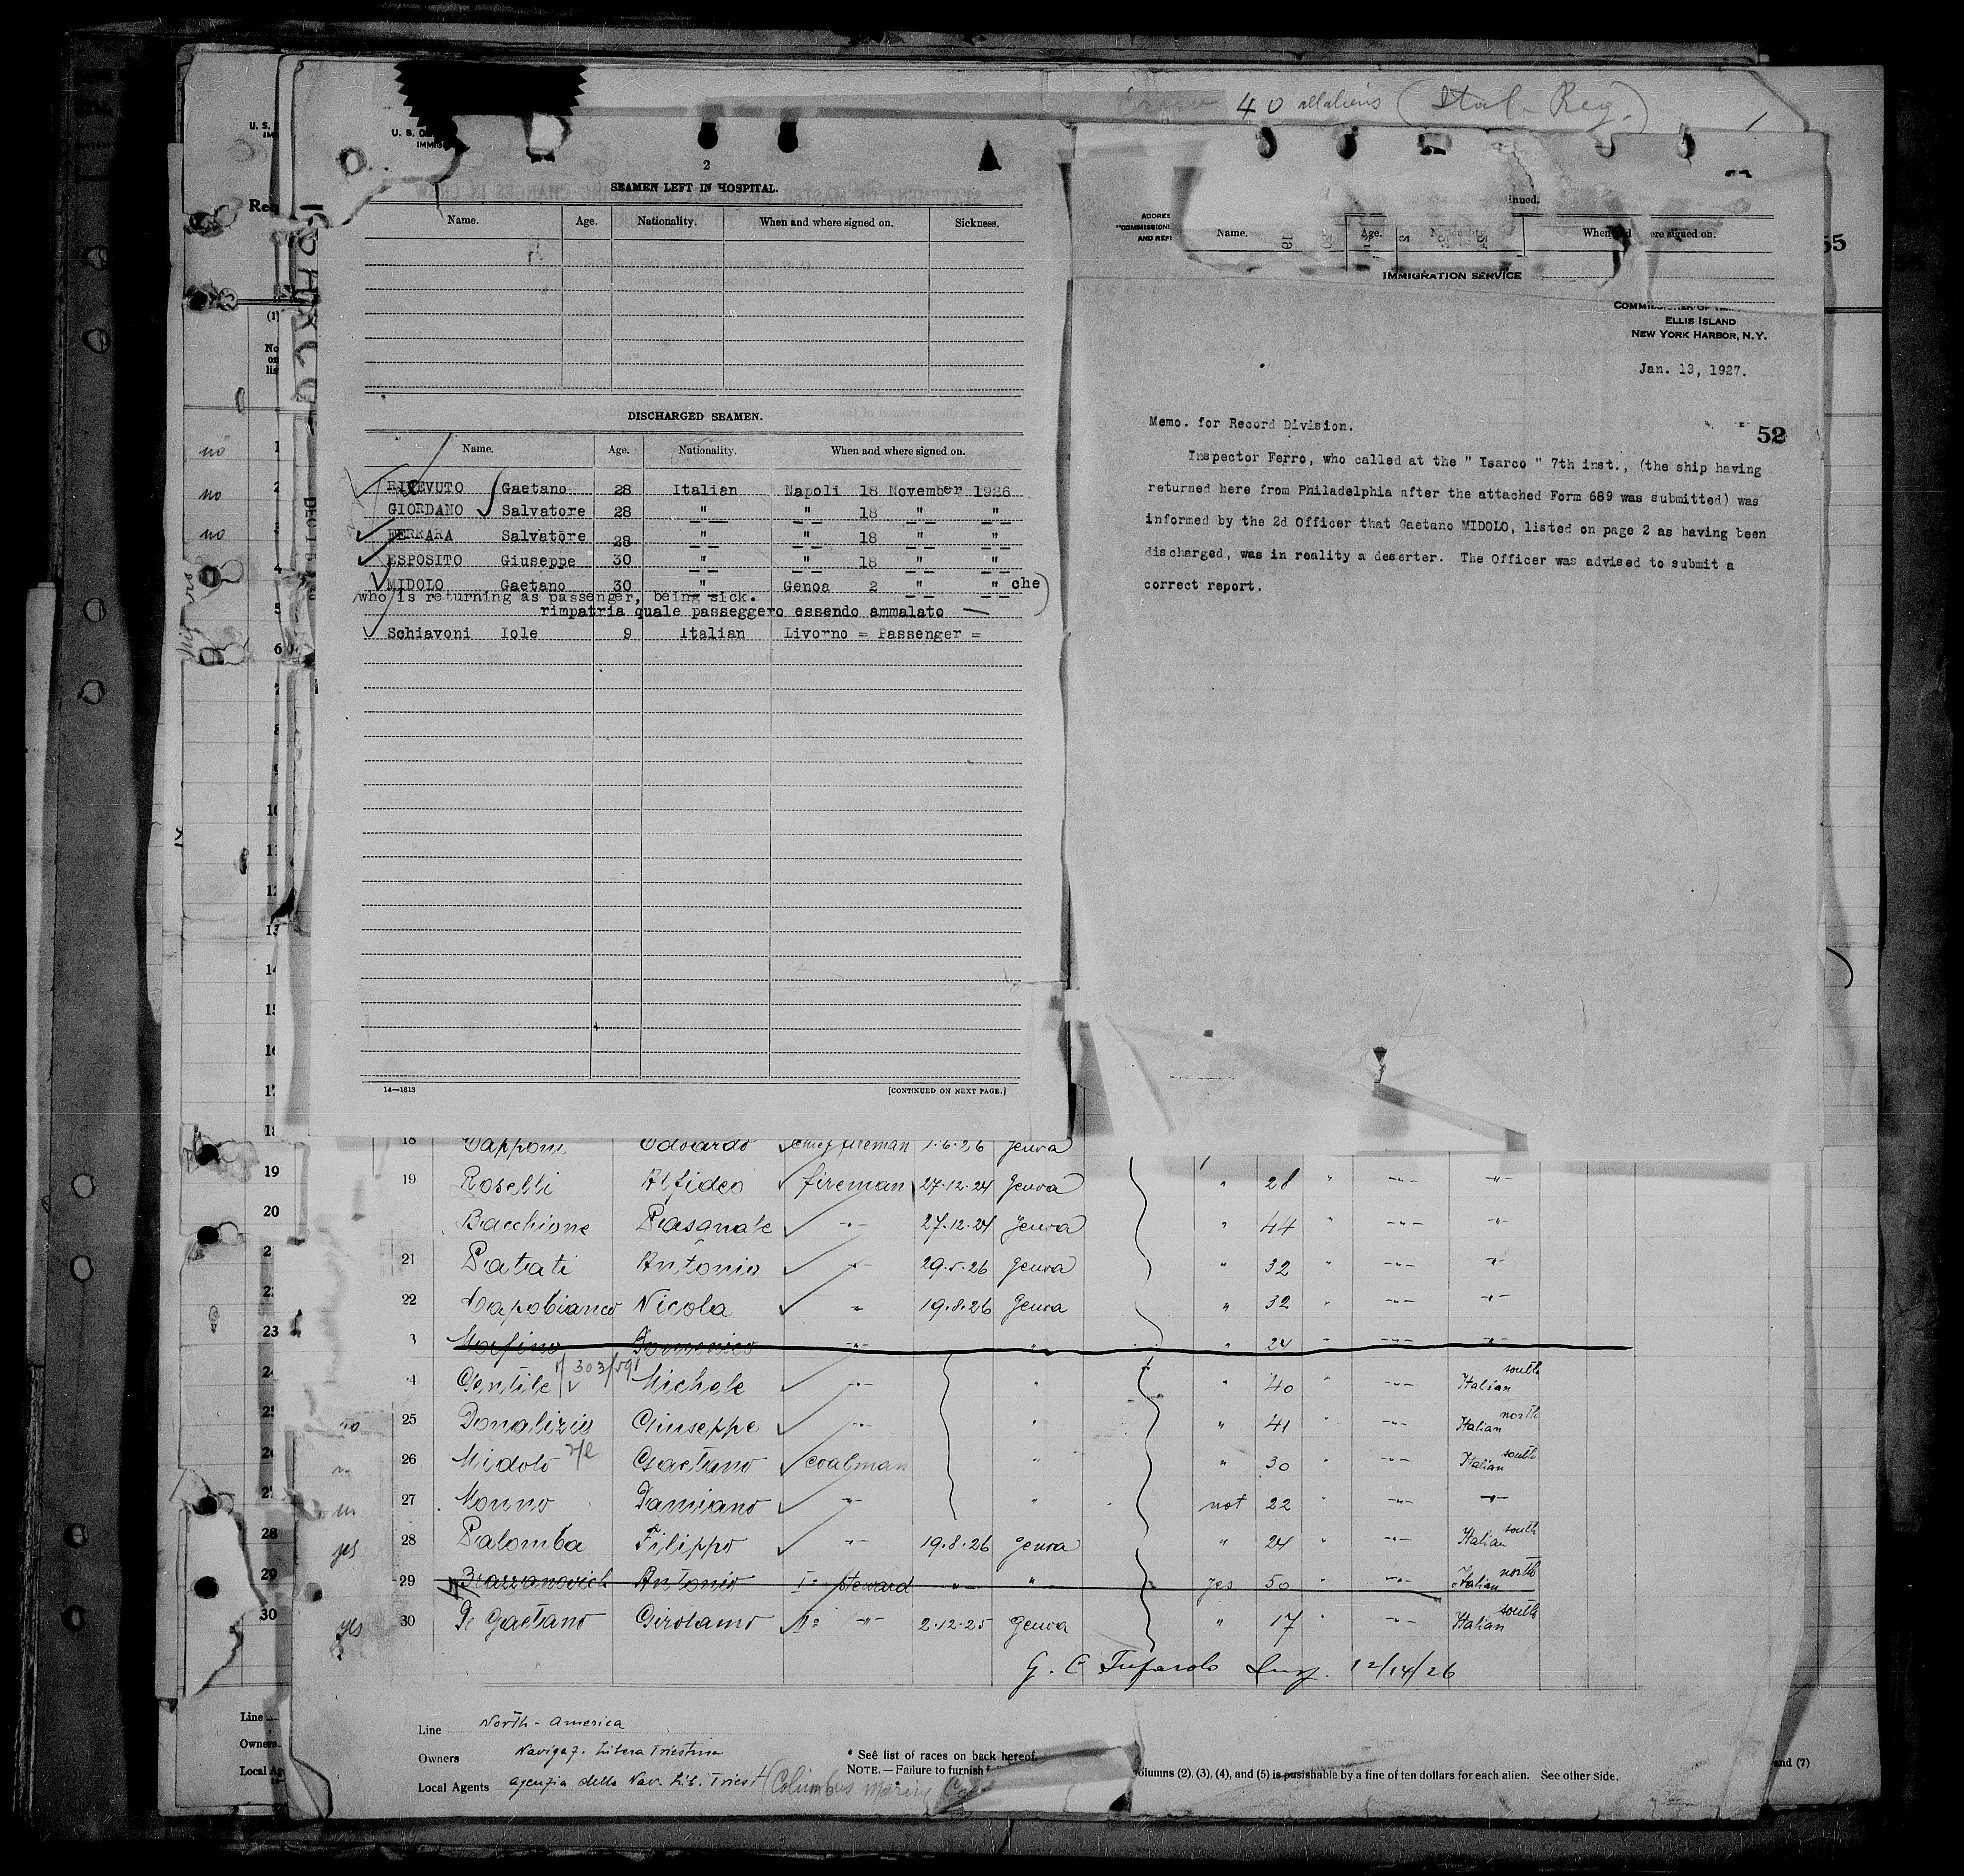 Crew 40 all aliens (Ital-Reg.)
1
U. S. D
IMMIG
2
SEAMEN LEFT IN HOSPITAL.
Name. Age. Nationality. When and where signed on. Sickness.
DISCHARGED SEAMEN.
Name. Age. Nationality. When and where signed on.
Gaetano 28 Italian Napoli 18 November 1926
GIORDANO Salvatore 28 " " 18 " "
FERRARA Salvatore 28 " " 18 " "
ESPOSITO Giuseppe 30 " " 18 " "
MIDOLO Gaetano 30 " Genoa 2 " " che
who is returning as passenger, being sick.
rimpatria quale passeggero essendo ammalato —
Schiavoni Iole 9 Italian Livorno = Passenger =
14—1613 [CONTINUED ON NEXT PAGE.]
inued.
ADDRES
"COMMISSION
AND REFE
Name. Age. When and where signed on.
IMMIGRATION SERVICE
55
ELLIS ISLAND
NEW YORK HARBOR, N. Y.
Jan. 13, 1927.
Memo. for Record Division.
52
Inspector Ferro, who called at the " Isarco " 7th inst., (the ship having
returned here from Philadelphia after the attached Form 689 was submitted) was
informed by the 2d Officer that Gaetano MIDOLO, listed on page 2 as having been
discharged, was in reality a deserter. The Officer was advised to submit a
correct report.
18 Capponi Edoardo chief fireman 1.6.26 Genoa
19 Roselli Alfideo fireman 27.12.24 Genova " 28 " -"- -"-
Bacchione Pasquale -"- 27.12.24 Genova " 44 " -"- -"-
21 Patati Antonio -"- 29.5.26 Genova " 32 " -"- -"-
22 Capobianco Nicola " 19.8.26 Genova " 32 " -"- -"-
3 Domenico -"- " " 24 " -"- -"-
4 Gentile Michele -"- " " 40 " -"- Italian south
25 Donalizio Giuseppe -"- " " 41 " -"- Italian north
26 Midolo Gaetano coalman " " 30 " -"- Italian south
27 Monno Damiano -"- " not 22 " -"- -"-
28 Palomba Filippo -"- 19.8.26 Genova " 24 " -"- Italian south
29 Brazzanovich Antonio I° steward -"- " yes 50 " -"- Italian north
30 De Gaetano Girolamo II° -"- 2.12.25 Genova " 17 " -"- Italian south
12/14/26
Line North-America
Owners Navigaz. Libera Triestina
Local Agents Agenzia della Nav. Lib. Triest (Columbus Marine
* See list of races on back hereof.
NOTE.—Failure to furnish
olumns (2), (3), (4), and (5) is punishable by a fine of ten dollars for each alien. See other side.
and (7)